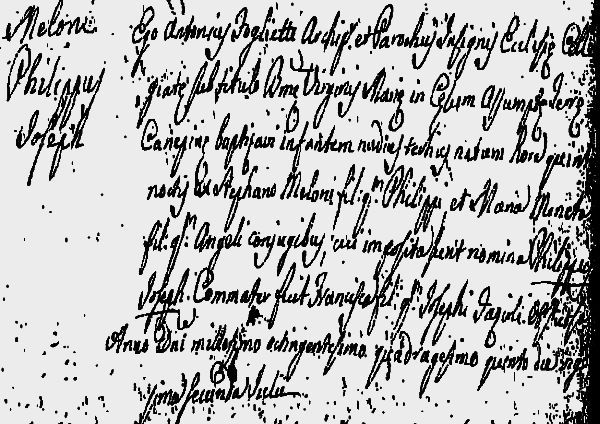 Meloni
Philippus
Joseph
Ego Antonius Foglietta Archip. et Parochus Insignis Ecclesiæ Colle
giatæ sub titulo Bmæ Virginis Mariæ in Cœlum Assumptæ Terræ
Canepinæ baptizavi infantem nudius tertius natum hora quinta
noctis ex Stephano Meloni fil. qm Philippi et Maria
fil. qm Angeli conjugibus, cui imposita sunt nomina Philippus
Joseph. Commater fuit Francisca fil. qm Josephi
Anno Dni millesimo octingentesimo quadragesimo quinto die
sima secunda Julii